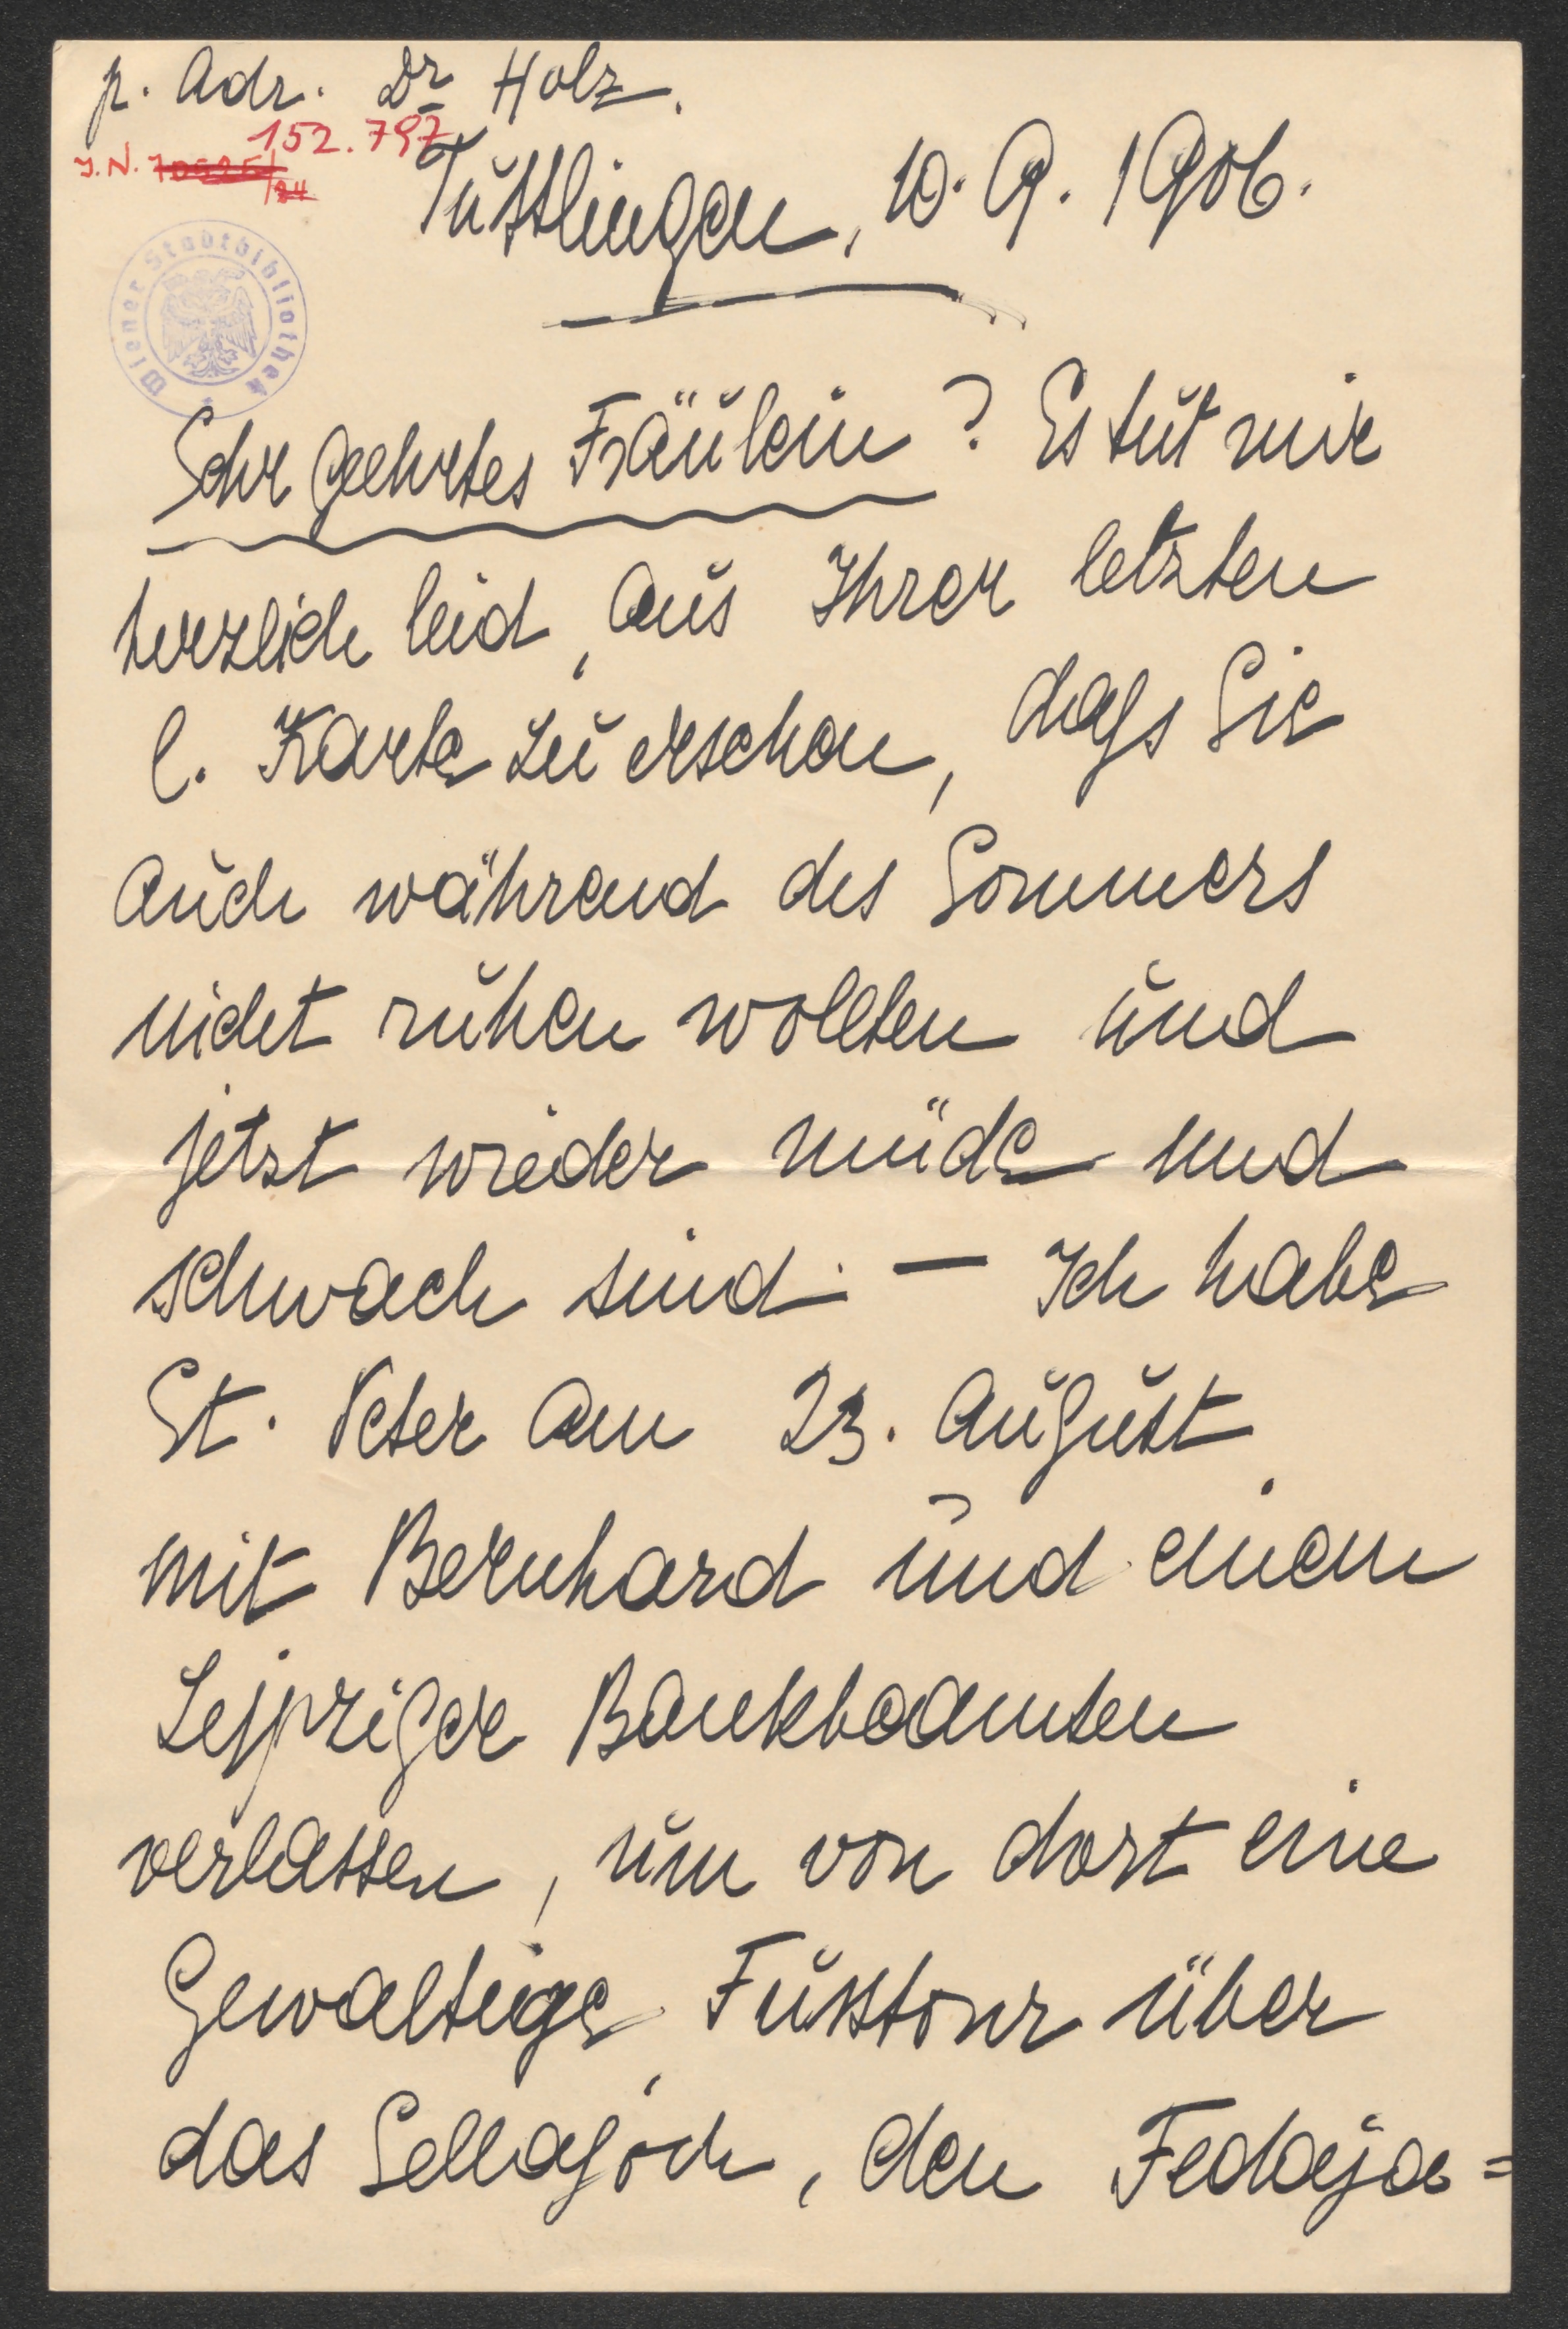 p. Adr. Dr Holz.
152.797
J.N.
Tuttlingen, 10. 9. 1906.
Wiener Stadtbibliothek
Sehr geehrtes Fräulein? Es tut mir
herzlich leid, aus Ihrer letzten
l. Karte zu ersehen, dass Sie
auch während des Sommers
nicht ruhen wollten und
jetzt wieder müde und
schwach sind. — Ich habe
St. Peter am 23. August
mit Bernhard und einem
Leipziger Bankbeamten
verlassen, um von dort eine
gewaltige Fusstour über
das Sellajoch, den Fedaja=